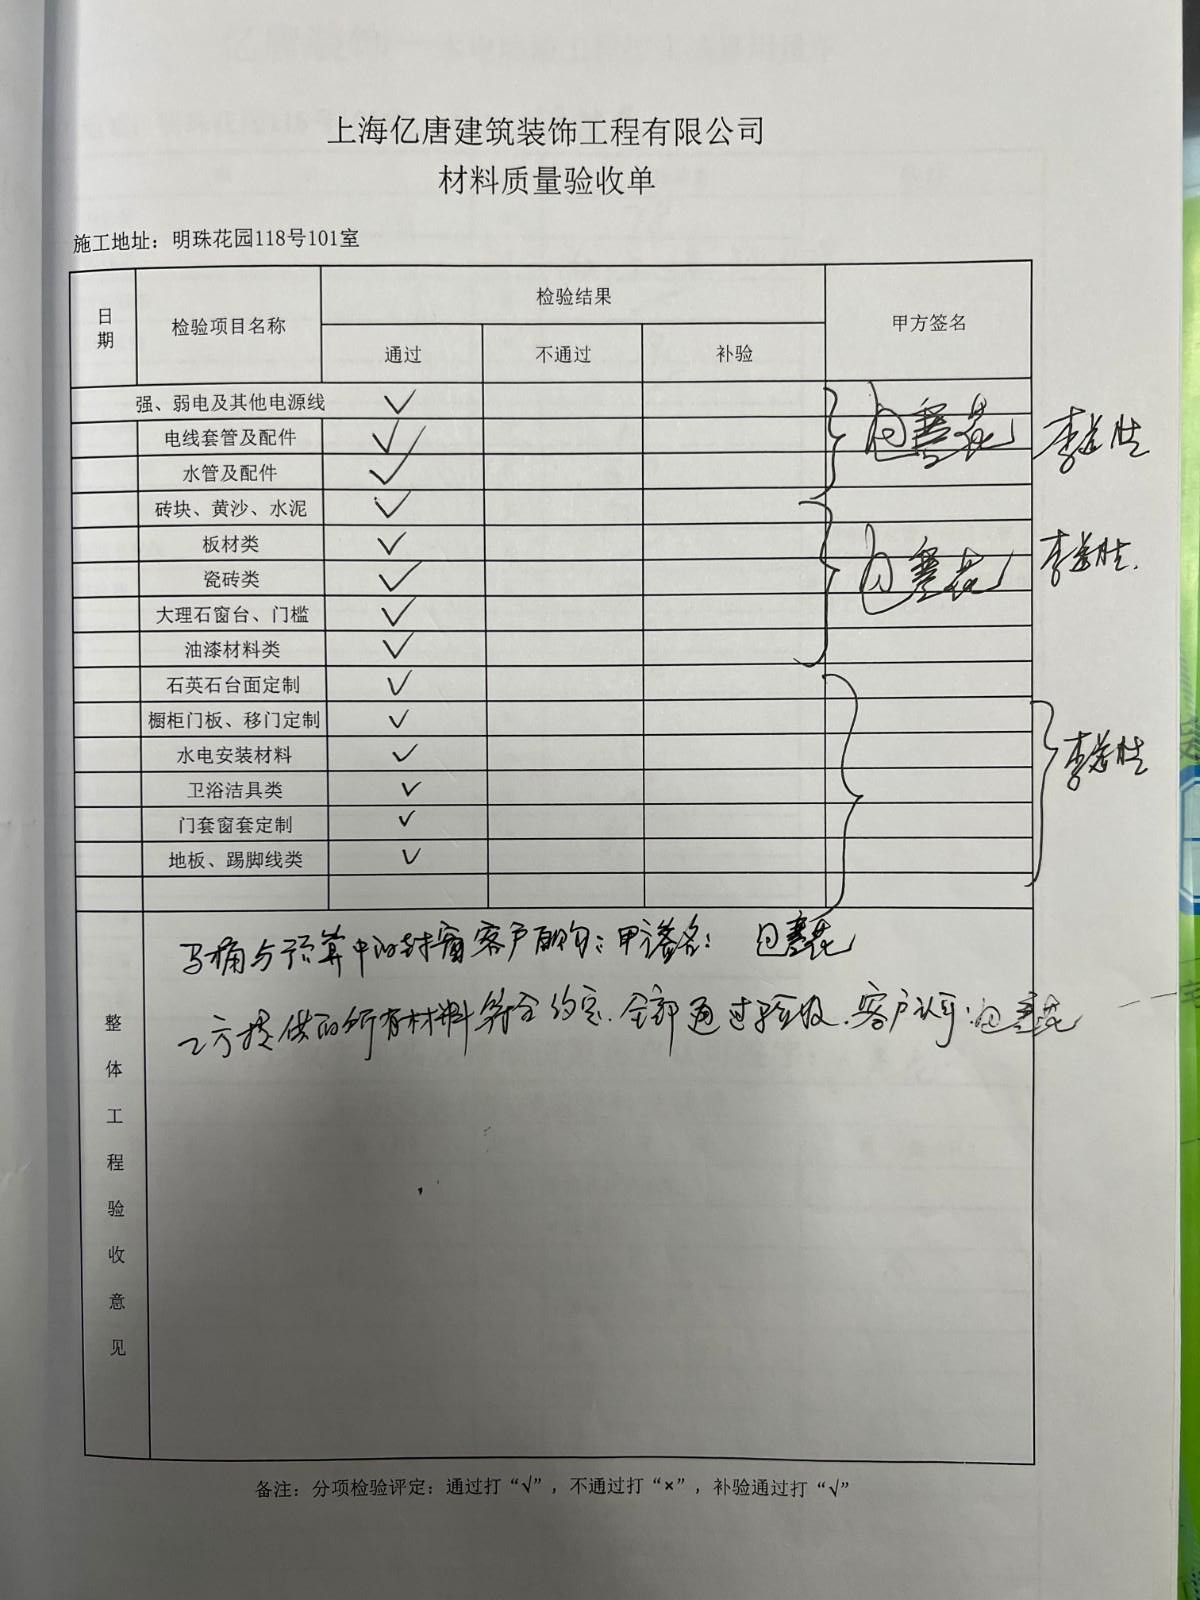 上海亿唐建筑装饰工程有限公司
材料质量验收单
施工地址：明珠花园118号101室
日期 检验项目名称 检验结果 甲方签名
通过 不通过 补验
强、弱电及其他电源线 ✓
电线套管及配件 ✓
水管及配件 ✓
砖块、黄沙、水泥 ✓
板材类 ✓
瓷砖类 ✓
大理石窗台、门槛 ✓
油漆材料类 ✓
石英石台面定制 ✓
橱柜门板、移门定制 ✓
水电安装材料 ✓
卫浴洁具类 ✓
门套窗套定制 ✓
地板、踢脚线类 ✓
整体工程验收意见
马桶与预算中的封窗客户自购；甲方签名：
乙方提供的所有材料符合约定.全部通过验收.客户认可：
备注：分项检验评定：通过打“√”，不通过打“×”，补验通过打“√”